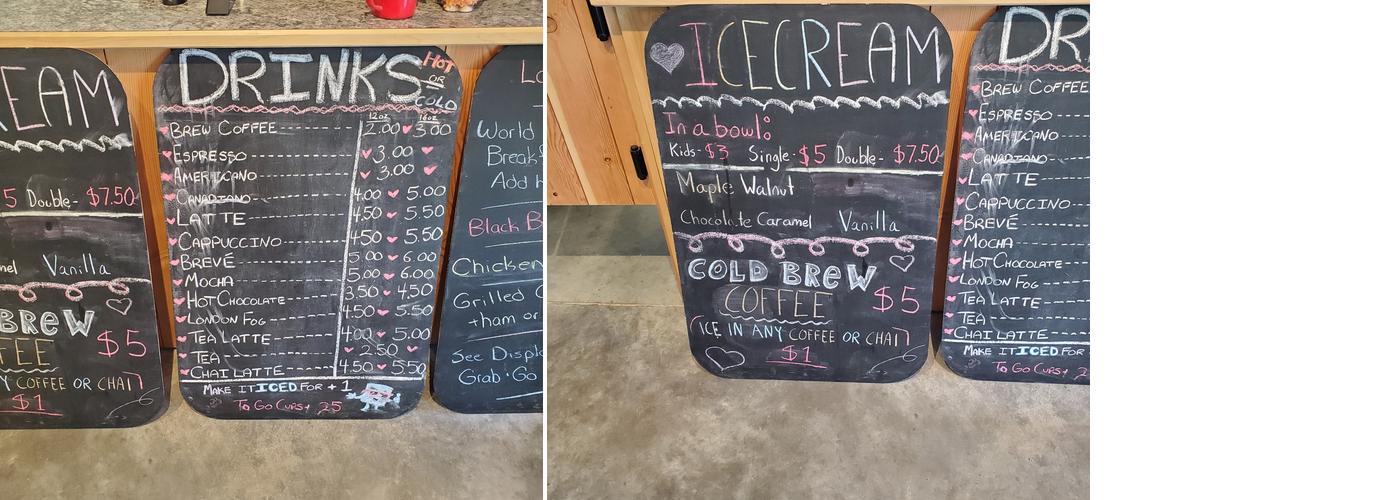 EAM
5 Double- $7.50
nel Vanilla
BREW
FEE $5
Y COFFEE OR CHAI)
$1
DRINKS HOT
OR
COLD
12oz 16oz
BREW COFFEE 2.00 3.00
ESPRESSO 3.00
AMERICANO 3.00
CANADIANO 4.00 5.00
LATTE 4.50 5.50
CAPPUCCINO 4.50 5.50
BREVÉ 5.00 6.00
MOCHA 5.00 6.00
HOT CHOCOLATE 3.50 4.50
LONDON FOG 4.50 5.50
TEA LATTE 4.00 5.00
TEA 2.50
CHAI LATTE 4.50 5.50
MAKE IT ICED FOR + 1
To Go Cups + .25
World
Break
Add
Black B
Chicken
Grilled
+ham or
See Displ
Grab·Go
ICECREAM
In a bowl:
Kids- $3 Single- $5 Double- $7.50
Maple Walnut
Chocolate Caramel Vanilla
COLD BREW
COFFEE $5
(ICE IN ANY COFFEE OR CHAI)
$1
DR
BREW COFFEE
ESPRESSO
AMERICANO
CANADIANO
LATTE
CAPPUCCINO
BREVÉ
MOCHA
HOT CHOCOLATE
LONDON FOG
TEA LATTE
TEA
CHAI LATTE
MAKE IT ICED FOR
To Go Cups +